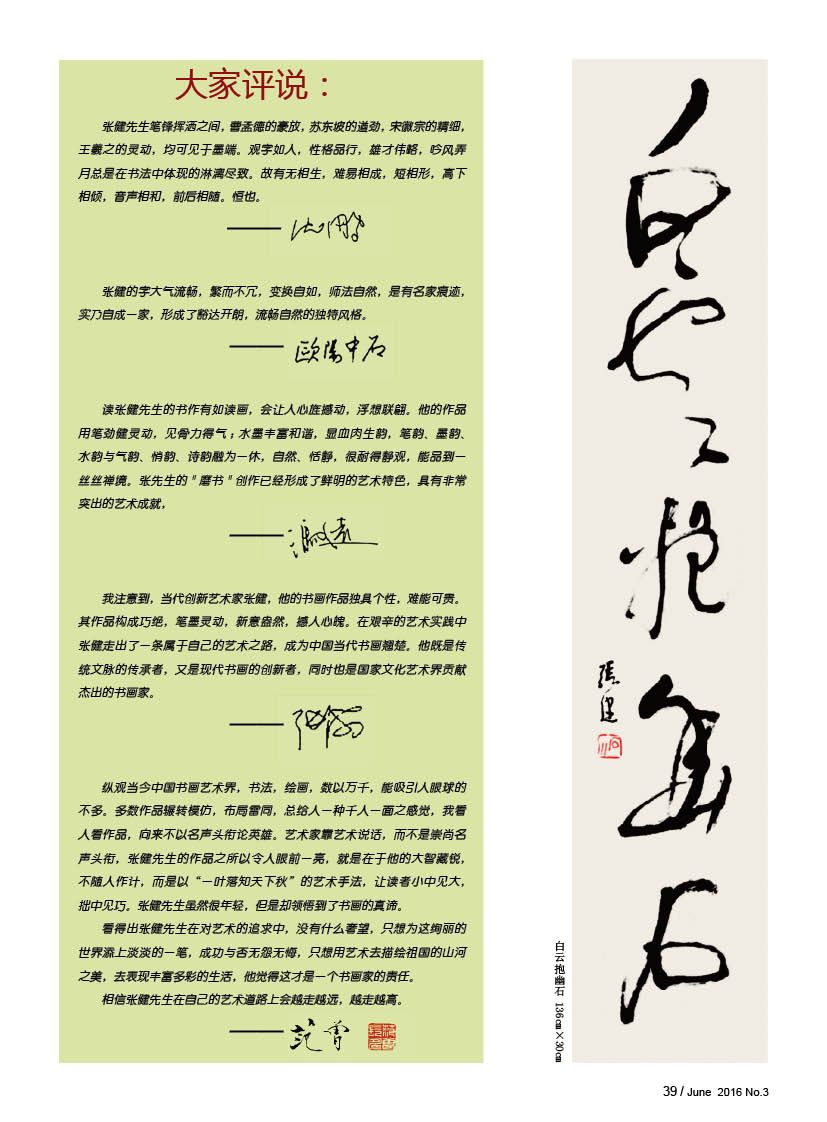 大家评说：
张健先生笔锋挥洒之间，曹孟德的豪放，苏东坡的遒劲，宋徽宗的精细，
王羲之的灵动，均可见于墨端。观字如人，性格品行，雄才伟略，吟风弄
月总是在书法中体现的淋漓尽致。故有无相生，难易相成，短相形，高下
相倾，音声相和，前后相随。恒也。
——沈鹏
张健的字大气流畅，繁而不冗，变换自如，师法自然，是有名家痕迹，
实乃自成一家，形成了豁达开朗，流畅自然的独特风格。
——欧阳中石
读张健先生的书作有如读画，会让人心旌撼动，浮想联翩。他的作品
用笔劲健灵动，见骨力得气；水墨丰富和谐，显血肉生韵，笔韵、墨韵、
水韵与气韵、情韵、诗韵融为一体，自然、恬静，很耐得静观，能品到一
丝丝禅境。张先生的"磨书"创作已经形成了鲜明的艺术特色，具有非常
突出的艺术成就，
——冯远
我注意到，当代创新艺术家张健，他的书画作品独具个性，难能可贵。
其作品构成巧绝，笔墨灵动，新意盎然，撼人心魄。在艰辛的艺术实践中
张健走出了一条属于自己的艺术之路，成为中国当代书画翘楚。他既是传
统文脉的传承者，又是现代书画的创新者，同时也是国家文化艺术界贡献
杰出的书画家。
——
纵观当今中国书画艺术界，书法，绘画，数以万千，能吸引人眼球的
不多。多数作品辗转模仿，布局雷同，总给人一种千人一面之感觉，我看
人看作品，向来不以名声头衔论英雄。艺术家靠艺术说话，而不是崇尚名
声头衔，张健先生的作品之所以令人眼前一亮，就是在于他的大智藏锐，
不随人作计，而是以“一叶落知天下秋”的艺术手法，让读者小中见大，
拙中见巧。张健先生虽然很年轻，但是却领悟到了书画的真谛。
看得出张健先生在对艺术的追求中，没有什么奢望，只想为这绚丽的
世界添上淡淡的一笔，成功与否无怨无悔，只想用艺术去描绘祖国的山河
之美，去表现丰富多彩的生活，他觉得这才是一个书画家的责任。
相信张健先生在自己的艺术道路上会越走越远，越走越高。
——范曾
白云抱幽石
張健
白云抱幽石 136㎝×30㎝
39 / June 2016 No.3